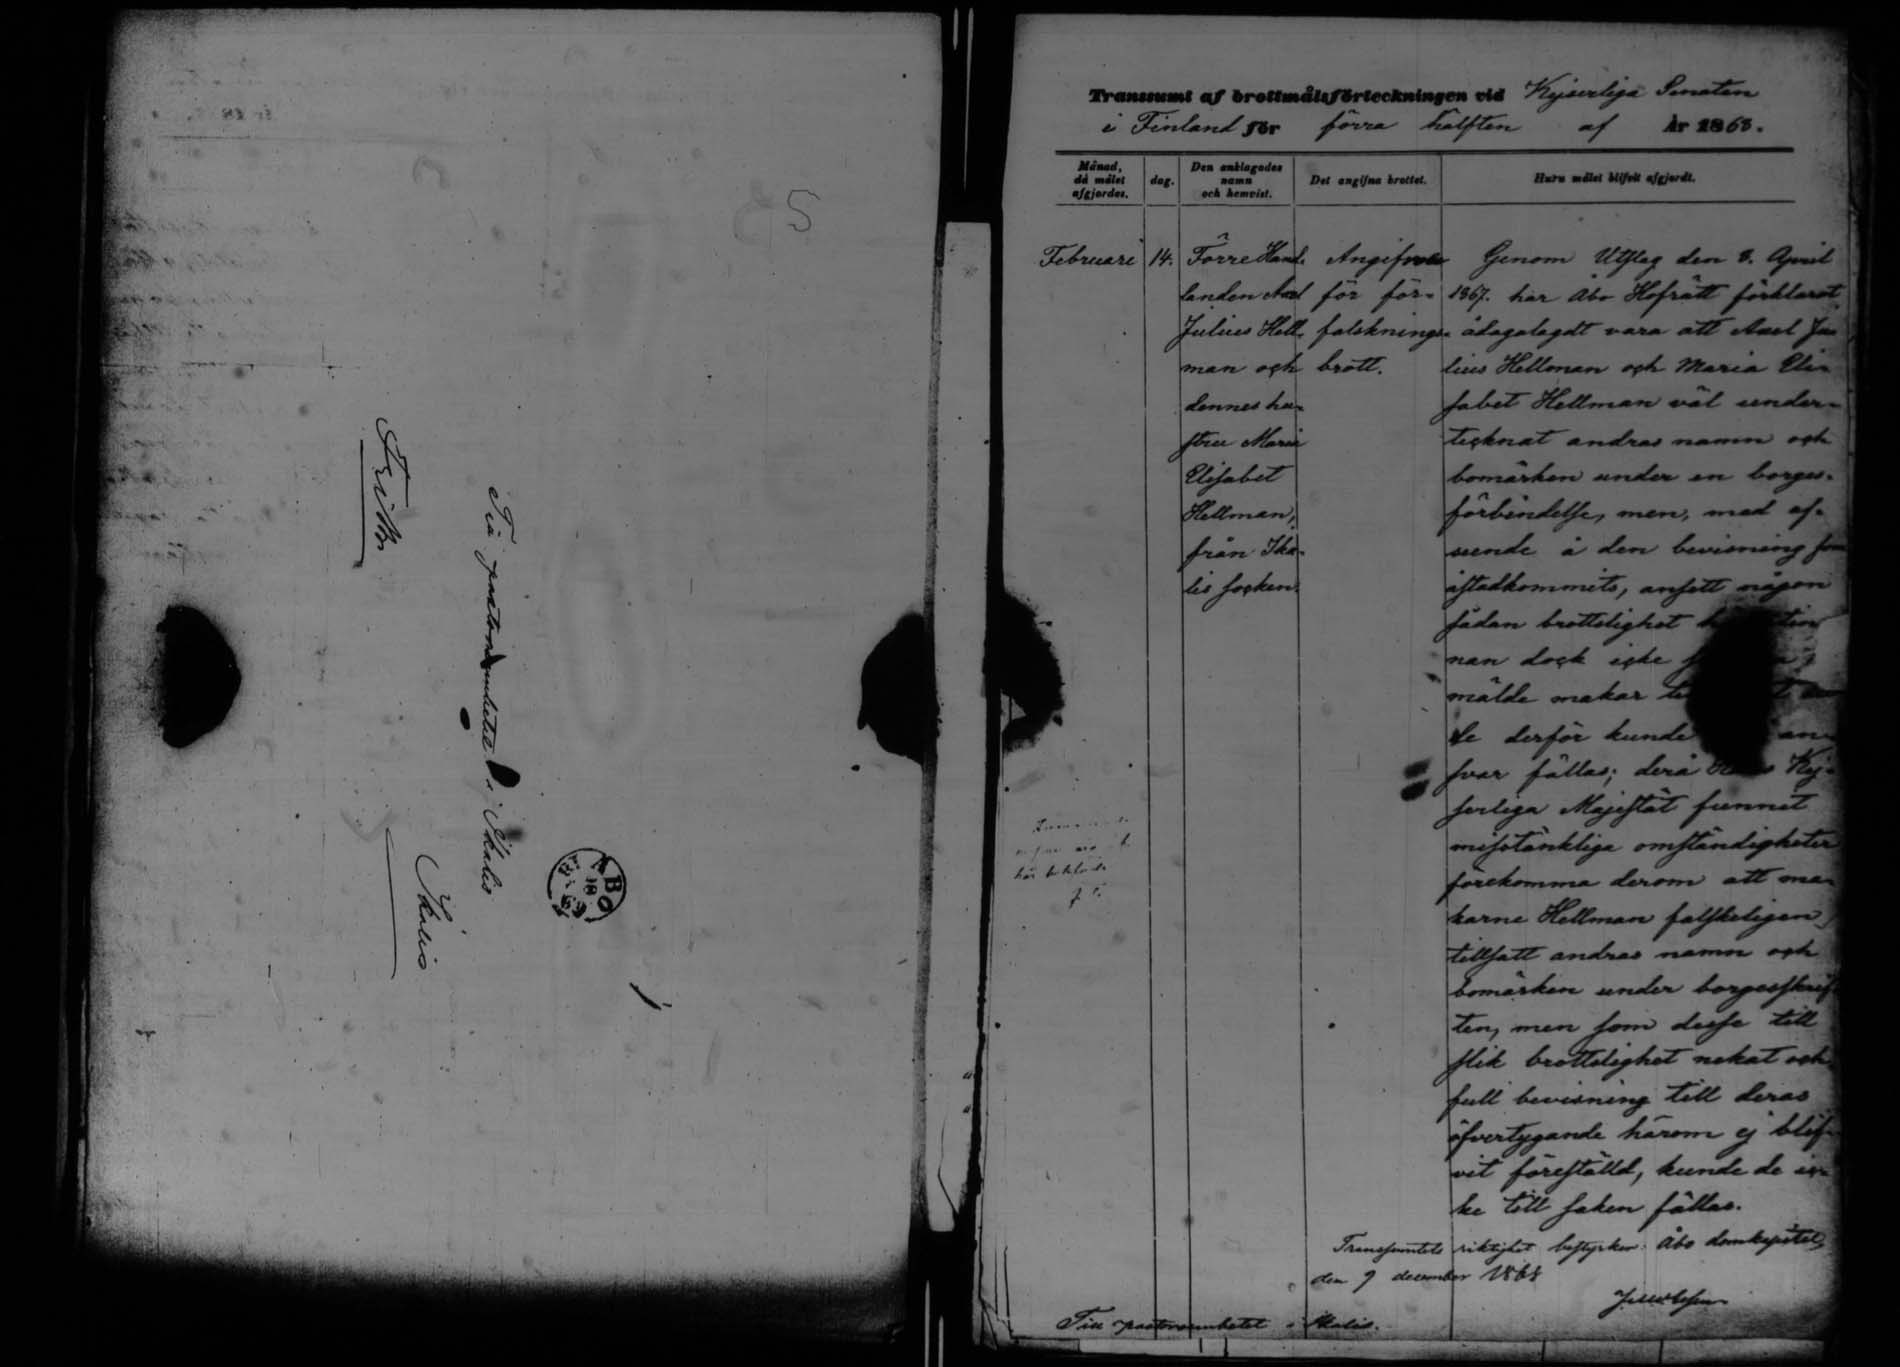 5
Fri Br
Till pastorsembetet i Ikalis
Ikalis
ABO
18
69
1
Transsumt af brottmålsförteckningen vid Kejserliga Senaten
i Finland för förra hälften af År 1868.
Månad, då målet afgjordes.
dag.
Den anklagades namn och hemvist.
Det angifna brottet.
Huru målet blifvit afgjordt.
Februari
14.
Förre Hand-
landen Axel
Julius Hell-
man och
dennes hu-
stru Maria
Elisabet
Hellman,
från Ika-
lis socken.
Angifvne
för för-
falsknings-
brott.
Genom Utslag den 8. April
1867. har Åbo Hofrätt förklarat
ådagalagdt vara att Axel Ju-
lius Hellman och Maria Eli-
sabet Hellman väl under-
tecknat andras namn och
bomärken under en borges-
förbindelse, men, med af-
seende å den bevisning som
åstadkommits, ansett någon
sådan brottslighet
nan dock icke
mälde makar
de derför kunde an-
svar fällas; derå Kej-
serliga Majestät funnit
misstänkliga omständigheter
förekomma derom att ma-
karne Hellman falskeligen
tillsatt andras namn och
bomärken under borgesskrif-
ten, men som desse till
slik brottslighet nekat och
full bevisning till deras
öfvertygande härom ej blif-
vit företälld, kunde de ic-
ke till saken fällas.
Transsumtets riktighet bestyrker: Åbo domkapitel,
den 9 december 1868
Till pastorsembetet i Ikalis.